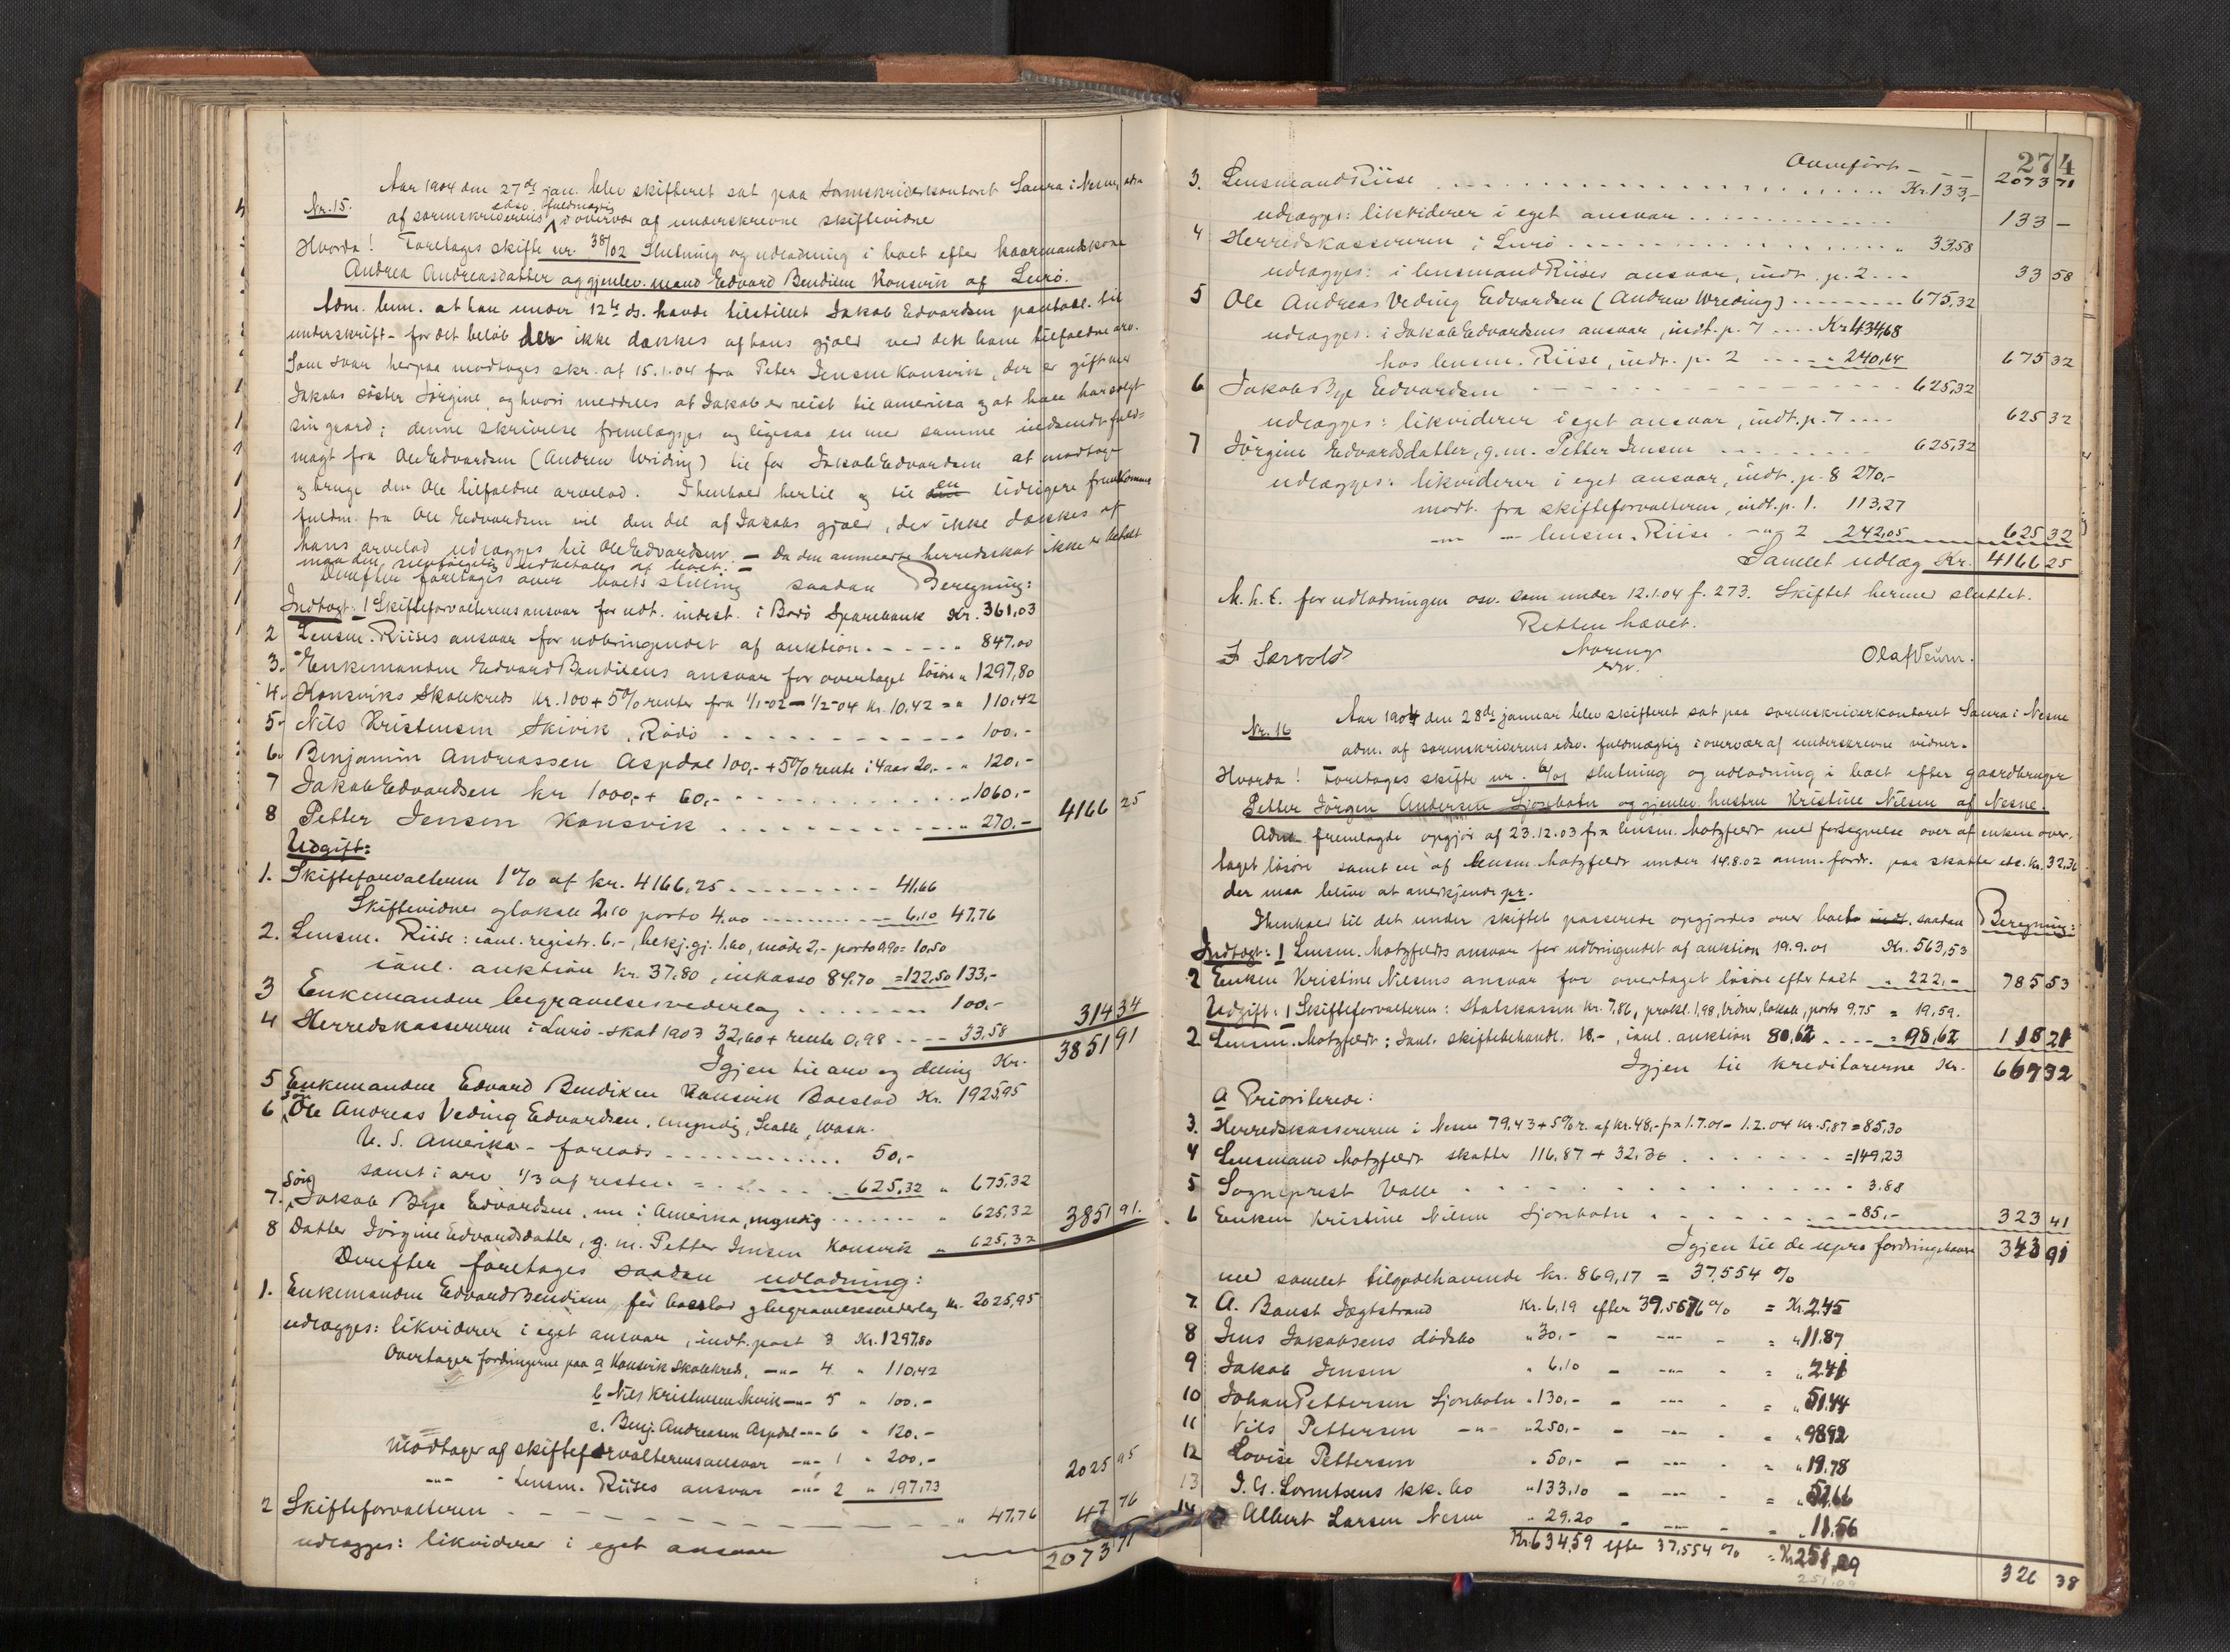 Aar 1904 den 27de jan. blev skifteret sat paa sorenskriverkontoret Saura i Nesna, adm.
Nr. 15.
af sorenskriverens edsv. fuldmægtig i overvær af underskrevne skiftevidne
Hvorda! Foretages skifte nr. 38/02 Slutning og udlodning i boet efter kaarmandskone
Andrea Andreasdatter og gjenlev. mand Edvard Bendiksen Konsvik af Lurö.
Adm. bem. at han under 12te ds. havde tilstillet Jakob Edvardsen pantobl. til
underskrift for det beløb der ikke dækkes af hans gjæld ved den ham tilfaldne arv.
Som svar herpaa modtages skr. af 15.1.04 fra Peter Jensen Konsvik, der er gift med
Jakobs söster Jörgine, og hvori meddeles at Jakob er reist til amerika og at han har solgt
sin gaard; denne skrivelse fremlægges og ligesaa en med samme indsendt fuld-
magt fra Ole Edvardsen (Andrew Wriding) til for Jakob Edvardsen at modtage
og bruge den Ole tilfaldne arvelod. I henhold hertil og til en tidligere fremkommen
fuldm. fra Ole Edvardsen vil den del af Jakobs gjæld, der ikke dækkes af
hans arvelod udlægges til Ole Edvardsen. – Da den anmeldte herredsskat ikke er betalt
maa den selvfølgelig udbetales af boet. –
Derefter foretages over boets stilling saadan Beregning:
Indtægt: 1 Skifteforvalterens ansvar for udt. indest. i Bodö Sparebank Kr. 361,03
2 Lensm. Riises ansvar for udbringendet af auktion . . . . . . 847.00
3. Enkemanden Edvard Bendiksens ansvar for overtaget lösöre " 1297,80
4. Konsviks Skolekreds Kr. 100 + 5% renter fra 1/1-02 – 1/2-04 Kr. 10.42 = " 110,42
5. Nils Kristensen Skivik, Rödö . . . . . . 100.-
6. Benjamin Andreassen Aspdal 100,- + 5% rente i 4 aar 20,- . " 120,-
7 Jakob Edvardsen kr 1000,- + 60,- . . . . . . " 1060.-
8 Petter Jensen Konsvik . . . . . . " 270.- 4166 25
Udgift:
1. Skifteforvalteren 1% af kr. 4166,25 . . . . . . 41,66
Skiftevidner og lokale 2,10 porto 4.00 . . . . . . 6,10 47,76
2. Lensm. Riise: ianl. registr. 6,-, bekj.gj. 1.60, möde 2,- porto 0.90 = 10,50
ianl. auktion kr. 37,80, inkasso 84.70 = 122,50 133,-
3 Enkemanden begravelsesvederlag . . . . . . 100.-
4 Herredskassereren i Lurö - skat 1903 32,60 + rente 0,98 . . . . 33,58 314 34
Igjen til arv og deling Kr. 3851 91
5 Enkemanden Edvard Bendiksen Konsvik Boeslod Kr. 1925,95
6 Sön Ole Andreas Veding Edvardsen, myndig, Seatle, Wash.
U. S. Amerika - forlods . . . . . . 50,-
samt i arv 1/3 af resten = . . . . 625,32 " 675,32
7. Sön Jakob Bye Edvardsen, nu i Amerika, myndig . . . . . . " 625,32
8 Datter Jörgine Edvardsdatter, g. m. Petter Jensen Konsvik " 625,32 3851 91.
Derefter foretages saadan udlodning:
1. Enkemanden Edvard Bendiksen for boeslod og begravelsesvederlag Kr. 2025,95
udlægges: likviderer i eget ansvar, indt. post 3 Kr. 1297.80
Overtager fordringerne paa a Konsvik Skolekreds, –"– 4 " 110,42
b Nils Kristensen Skivik –"– 5 " 100.-
c. Benj. Andreasen Aspdal –"– 6 " 120.-
Modtager af skifteforvalterens ansvar –"– 1 " 200,-
–"– " Lensm. Riises ansvar –"– 2 " 197,73 2025 95
2 Skifteforvalteren . . . . . . " 47.76 47 76
udlægges: likviderer i eget ansvar
2073 71
274
Overført – 2073 71
3. Lensmand Riise . . . . . . Kr. 133,-
udlægges: likviderer i eget ansvar . . . . . . 133 –
4 Herredskassereren i Lurö . . . . . . " 33.58
udlægges: i lensmand Riises ansvar, indt. p. 2 . . . 33 58
5 Ole Andreas Veding Edvardsen (Andrew Wreding) . . . . . . 675,32
udlægges: i Jakob Edvardsens ansvar, indt. p. 7 . . . . Kr 434,68
hos lensm. Riise, indt. p. 2 . . . . " 240,64 675 32
6 Jakob Bye Edvardsen . . . . . . 625,32
udlægges: likviderer i eget ansvar, indt. p. 7 . . . . 625 32
7 Jörgine Edvardsdatter, g. m. Petter Jensen . . . . . . 625,32
udlægges: likviderer i eget ansvar, indt. p. 8 270,-
modt. fra skifteforvalteren, indt. p. 1. 113,27
–"– –"– lensm. Riise. –"– 2 242,05 625 32
Samlet udlæg Kr. 4166 25
M. h. t. forudlodningen osv. som under 12.1.04 f. 273. Skiftet hermed sluttet.
Retten hævet.
Olaf Veum.
Aar 1904 den 28de januar blev skifteret sat paa sorenskriverkontoret Saura i Nesna
Nr. 16
adm. af sorenskriverens edsv. fuldmægtig i overvær af underskrevne vidner.
Hvorda! Foretages skifte nr. 6/01 slutning og udlodning i boet efter gaardbruger
Petter Jörgen Andersen Sjonbotn og gjenlev. hustru Kristine Nilsen af Nesne.
Adm. fremlagde opgjör af 23.12.03 fra lensm. Motzfeldt med fortegnelse over af enken over-
taget lösöre samt en af lensm. Motzfeldt under 14.8.02 anm. fordr. paa skatter etc. kr. 32,36
der maa blive at anerkjende pr.
I henhold til det under skiftet passerede opgjordes over boets saadan Beregning:
Indtægt: 1 Lensm. Motzfeldts ansvar for udbringendet af auktion 19.9.01 Kr. 563,53
2 Enken Kristine Nilsens ansvar for overtaget lösöre efter takst " 222,- 785 53
Udgift: 1 Skifteforvalteren: Statskassen Kr. 7,86, prokl. 1,98, vidner, lokale, porto 9.75 = 19,59.
2 Lensm. Motzfeldt: Ianl. skiftebehandl. 18.-, ianl. auktion 80,62 . . . . = 98,62 118 21
Igjen til kreditorerne Kr. 667 32
a Prioriterede:
3. Herredskassereren i Nesna 79,43 + 5% r. af kr. 48,- fra 1.7.01 - 1.2.04 kr. 5,87 = 85,30
4 Lensmand Motzfeldt skatter 116,87 + 32,36 . . . . . . = 149,23
5 Sogneprest Valle . . . . . . 3.88
6 Enken Kristine Nilsen Sjonbotn . . . . . . 85,- 323 41
Igjen til de upri fordringshavere 343 91
med samlet tilgodehavende kr. 869,17 = 37,554 %
7. A. Baust Jægtstrand Kr. 6,19 efter 39,5676% = Kr. 2,45
8 Jens Jakobsens dödsbo " 30,- – –"– – = " 11.87
9 Jakob Jensen " 6.10 – –"– – = " 2.41
10 Johan Pettersen Sjonbotn " 130,- – –"– – = " 51.44
11 Nils Pettersen –"– " 250,- – –"– – = " 98.92
12 Lovise Pettersen " 50,- – –"– – = " 19.78
13 J. G. Lorentsens kk. bo " 133,10 – –"– – = " 52,66
14 Albert Larsen Nesna " 29.20 – –"– – = " 11.56
Kr. 634,59 efter 37,554 % = Kr. 251,09
251,09
326 38